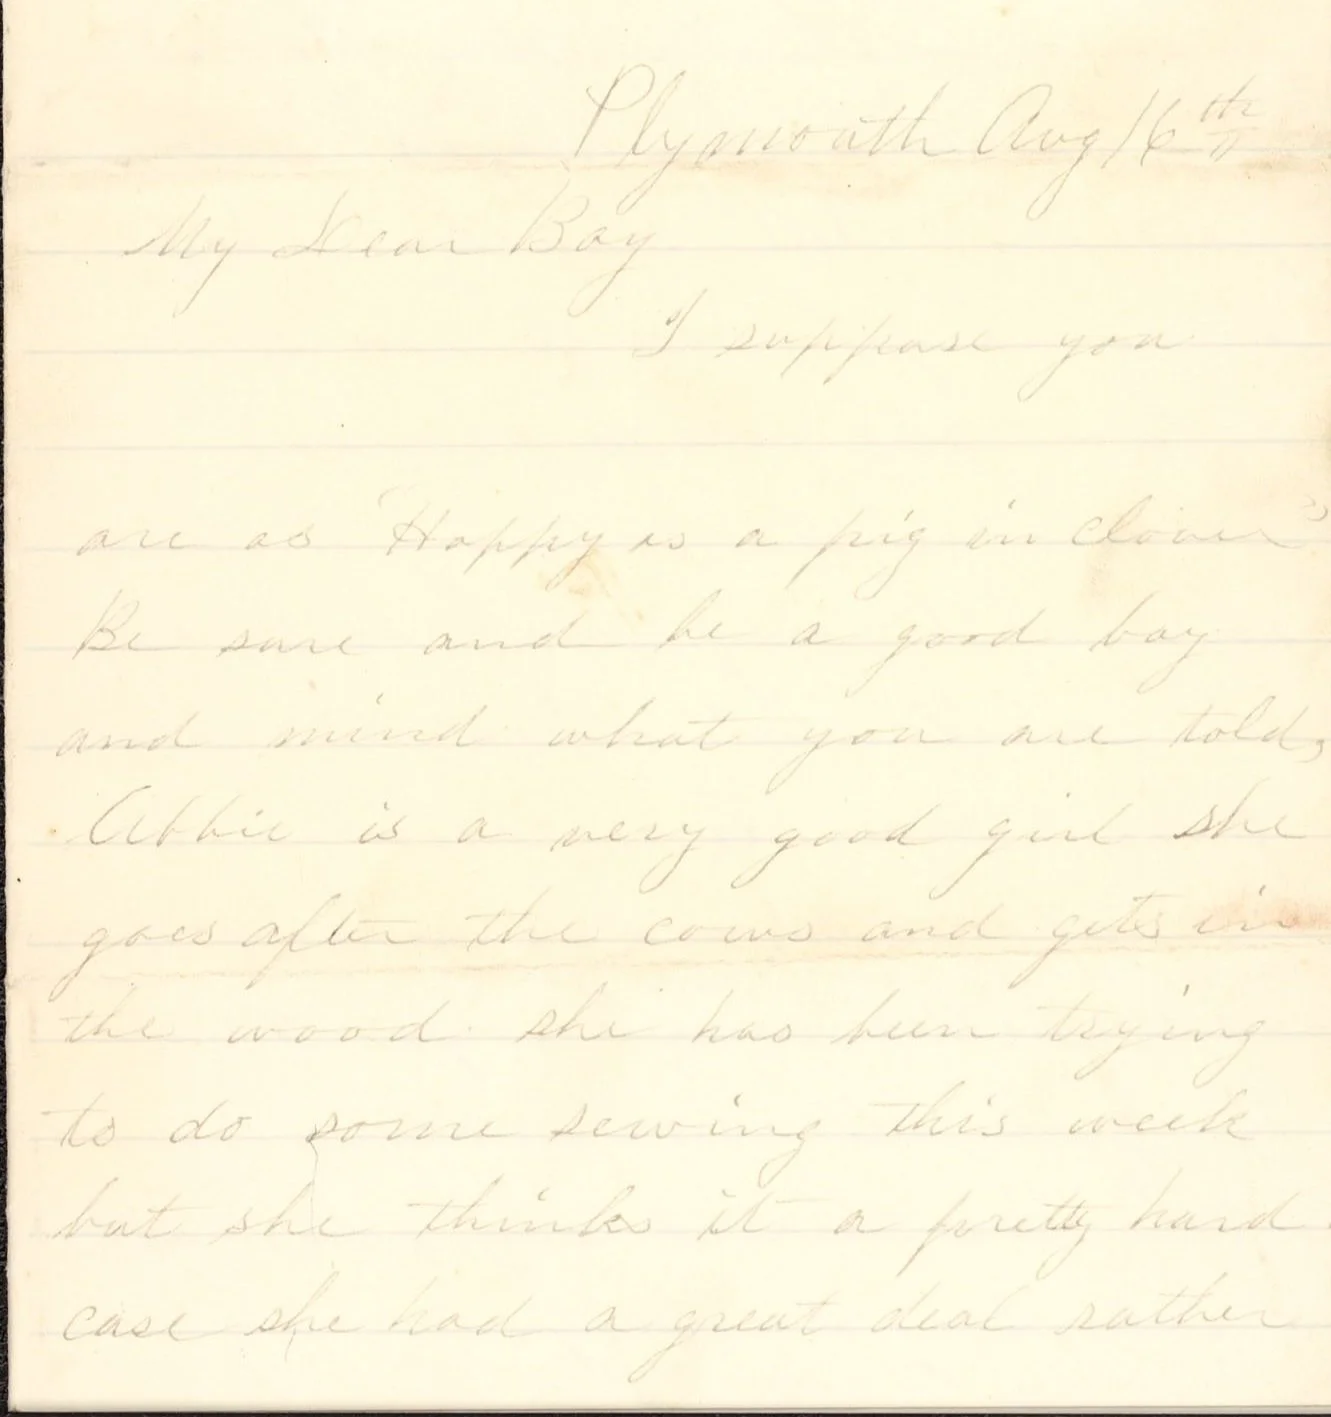 Plymouth Aug 16th
My Dear Boy
I suppose you
are as "Happy as a pig in clover"
Be sure and be a good boy
and mind what you are told,
Abbie is a very good girl she
goes after the cows and gets in
the wood she has been trying
to do some sewing this week
but she thinks it a pretty hard
case she had a great deal rather